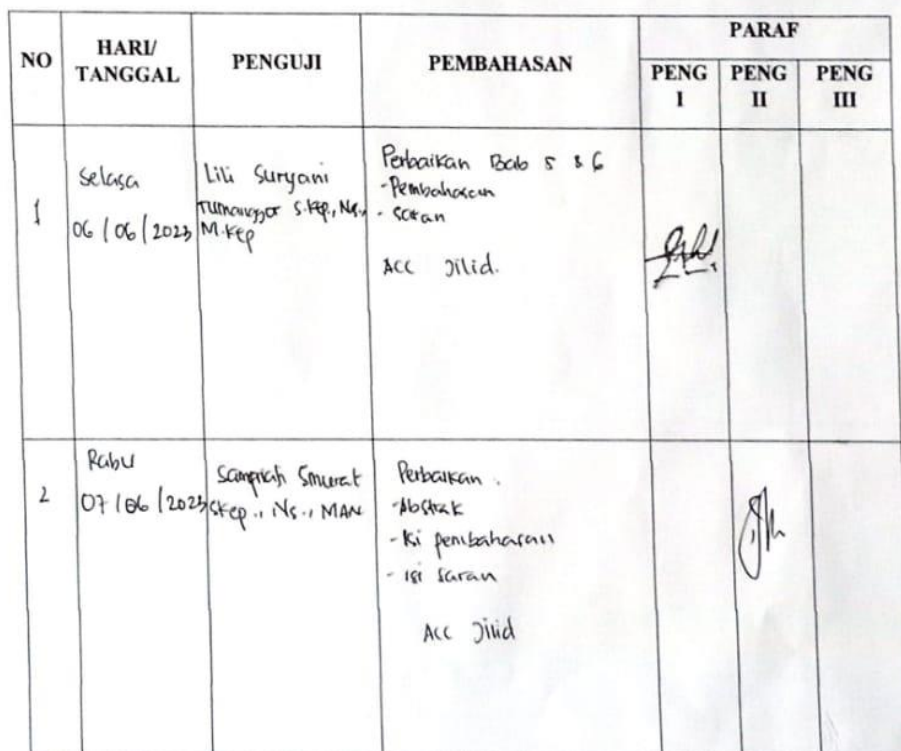 NO
HARI/
TANGGAL
PENGUJI
PEMBAHASAN
PARAF
PENG
I
PENG
II
PENG
III
1
Selasa
06/06/2023
Lili Suryani
Tumanggor S.Kep., Ns.,
M.Kep
Perbaikan Bab 5 & 6
- Pembahasan
- Saran
ACC Jilid.
2
Rabu
07/06/2023
Samfriati Sinurat
S.Kep., Ns., MAN
Perbaikan.
- Abstrak
- Isi pembahasan
- isi saran
ACC Jilid